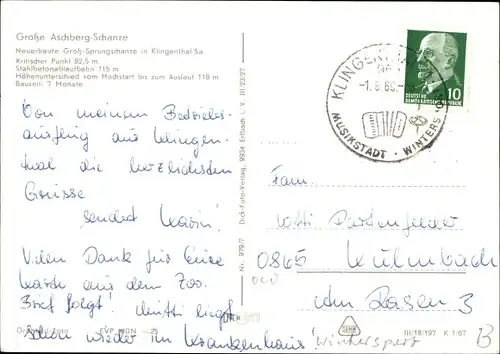 Große Aschberg-Schanze
Neuerbaute Groß-Sprungschanze in Klingenthal Sa.
Kritischer Punkt 82,5 m
Stahlbetonablaufbahn 115 m
Höhenunterschied vom Hochstart bis zum Auslauf 118 m
Bauzeit: 7 Monate
Von meinem Betriebs-
ausflug aus Klingen-
thal die herzlichsten
Grüsse
sendet Karin!
Vielen Dank für Eure
Karte aus dem Zoo.
Brief folgt! Mutti liegt
schon wieder im Krankenhaus!
Foto EVP MDN -,25
Nr. 979/7 Dick-Foto-Verlag, 9934 Erlbach i. V. III/23/27
KLINGENTHAL
-1.8.66.-
MUSIKSTADT · WINTERSPO
DEUTSCHE
DEMOKRATISCHE REPUBLIK
10
Fam.
865 Kulmbach
Am Rasen 3
III/18/197 K 1/67
Wintersport
B